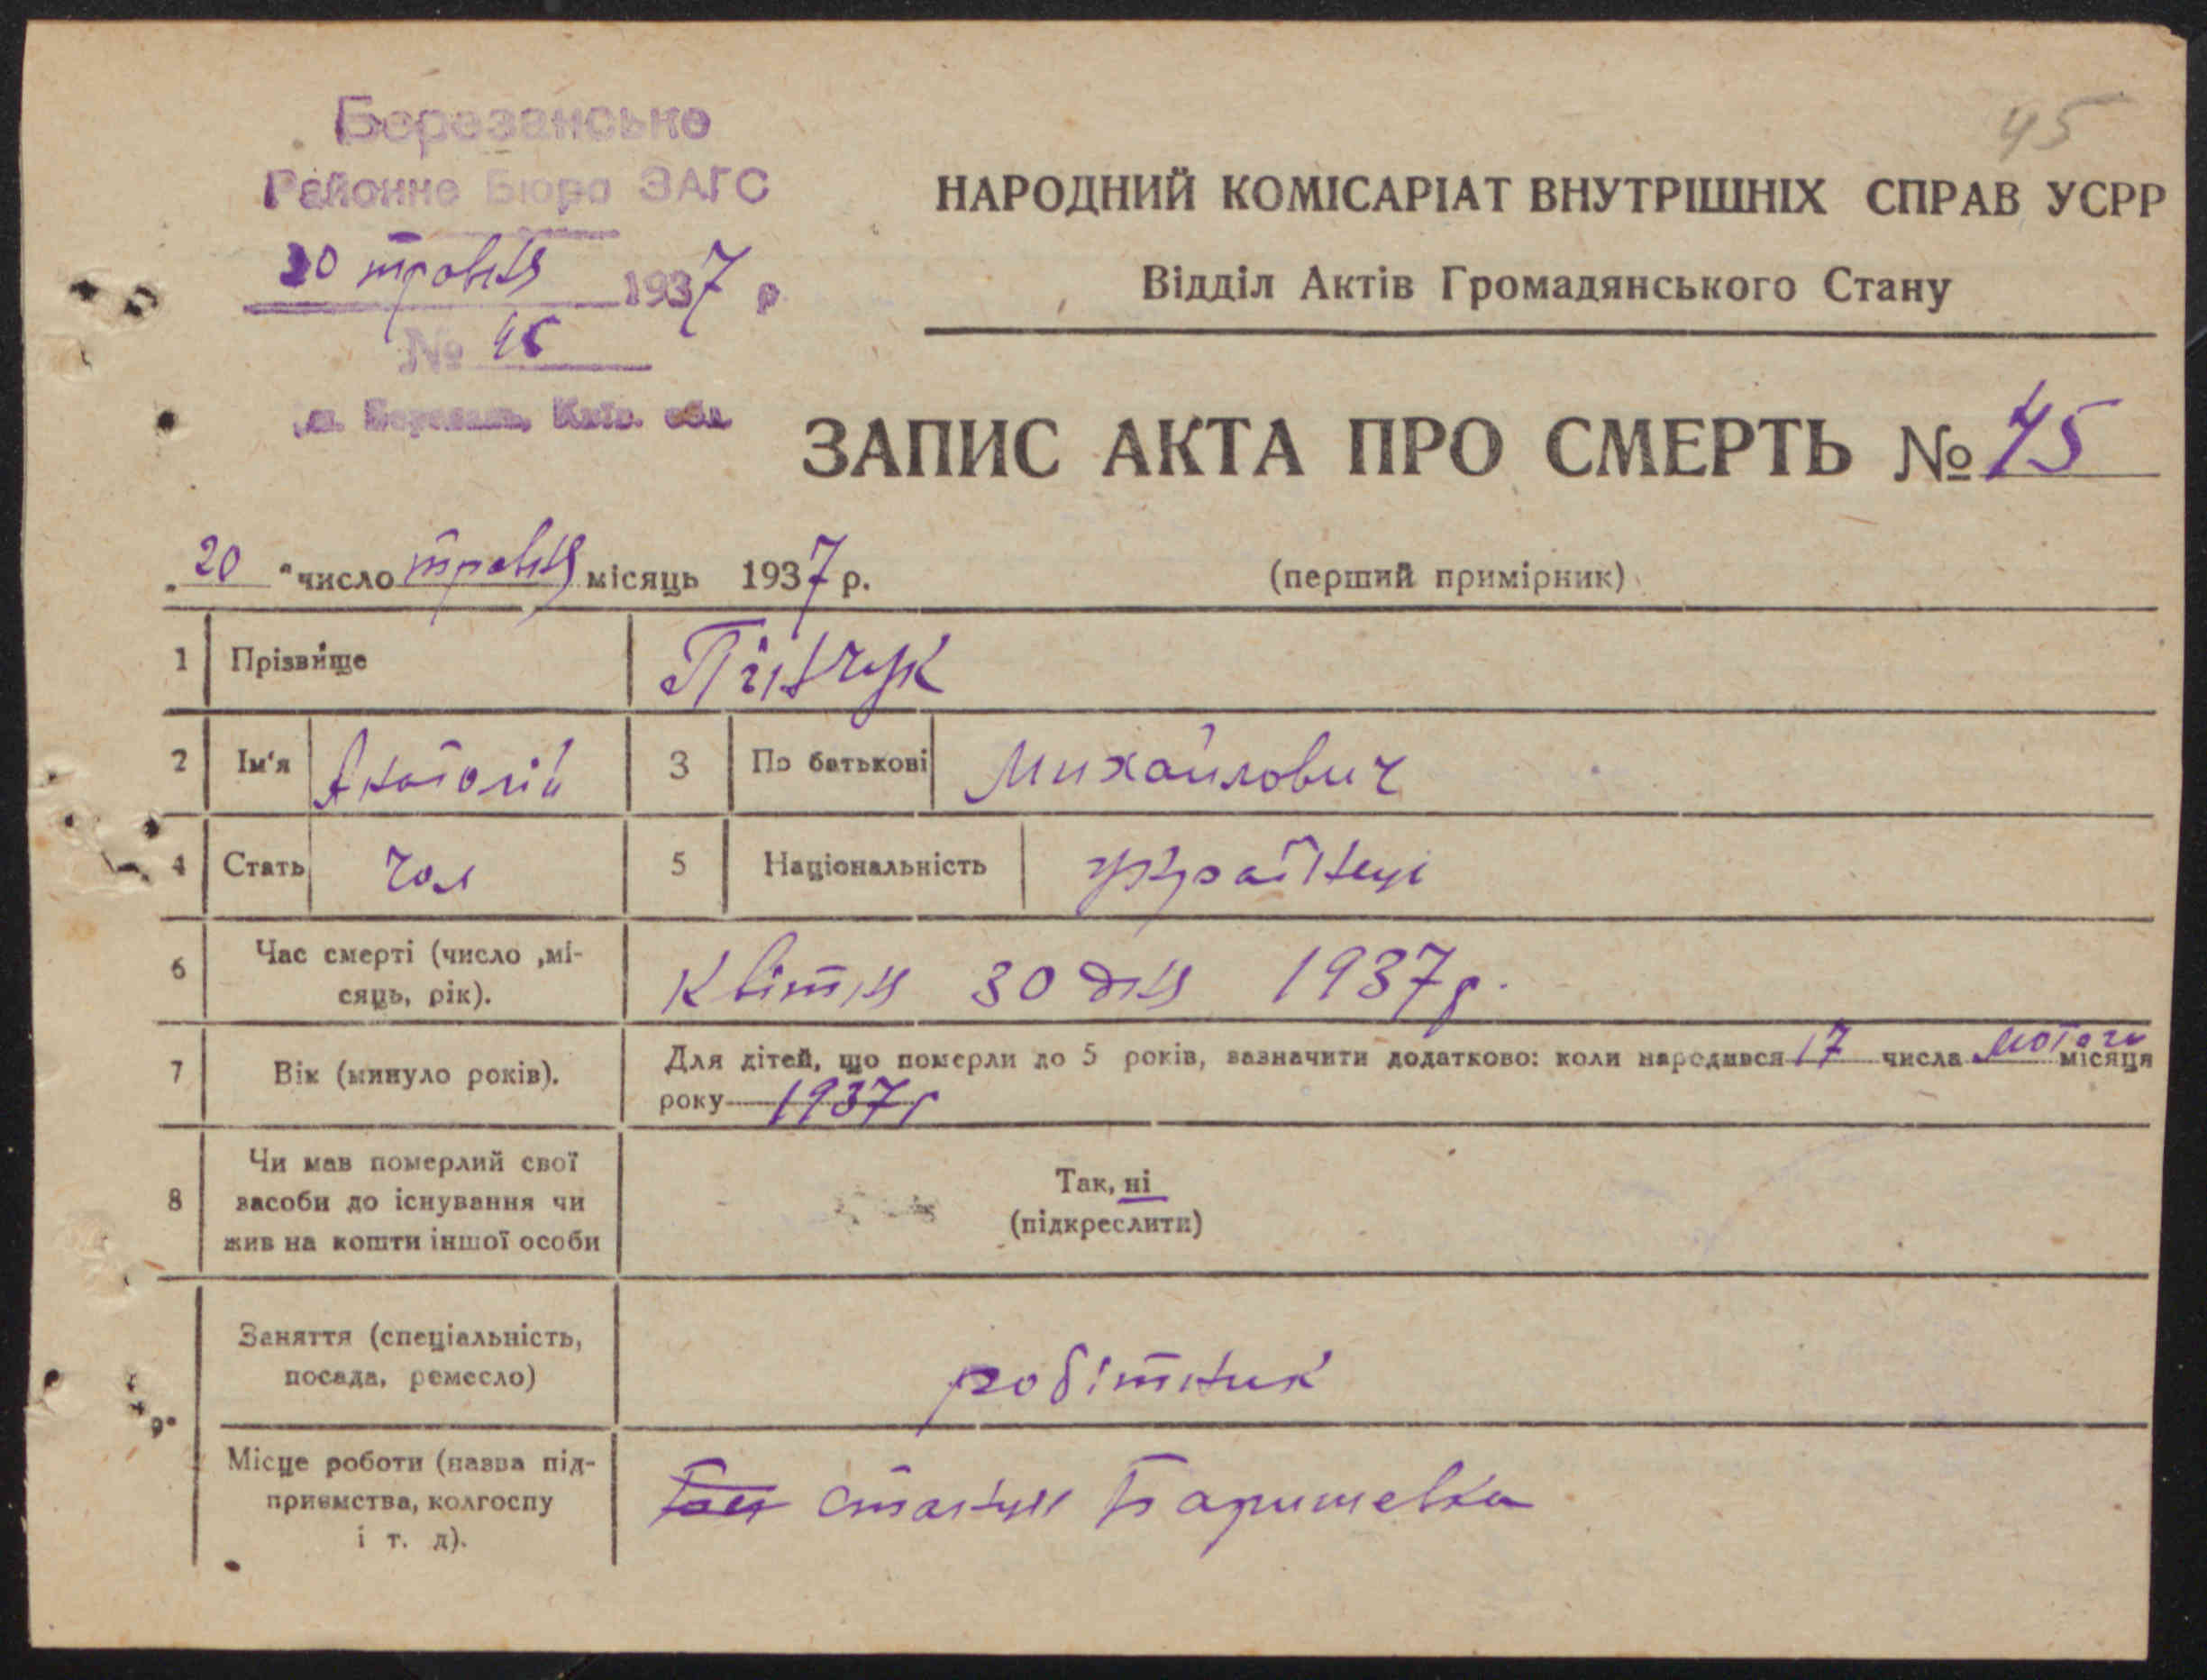 45
Березанське
Районне Бюро ЗАГС
20 травня 1937 р
№ 45
м. Березань, Київ. обл.
НАРОДНИЙ КОМІСАРІАТ ВНУТРІШНІХ СПРАВ УСРР
Відділ Актів Громадянського Стану
ЗАПИС АКТА ПРО СМЕРТЬ № 45
„20“ число травня місяць 1937 р.
(перший примірник)
1 Прізвище Пінчук
2 Ім'я Анатолій 3 По батькові Михайлович
4 Стать чол 5 Національність
6 Час смерті (число ,мі-
сяць, рік).
Квітня 30 дня 1937 р.
7 Вік (минуло років).
Для дітей, що померли до 5 років, зазначити додатково: коли народився 17 числа лютого місяця
року 1937 р
8 Чи мав померлий свої
засоби до існування чи
жив на кошти іншої особи
Так, ні
(підкреслити)
9
Заняття (спеціальність,
посада, ремесло)
робітник
Місце роботи (назва під-
приємства, колгоспу
і т. д).
Баришевка